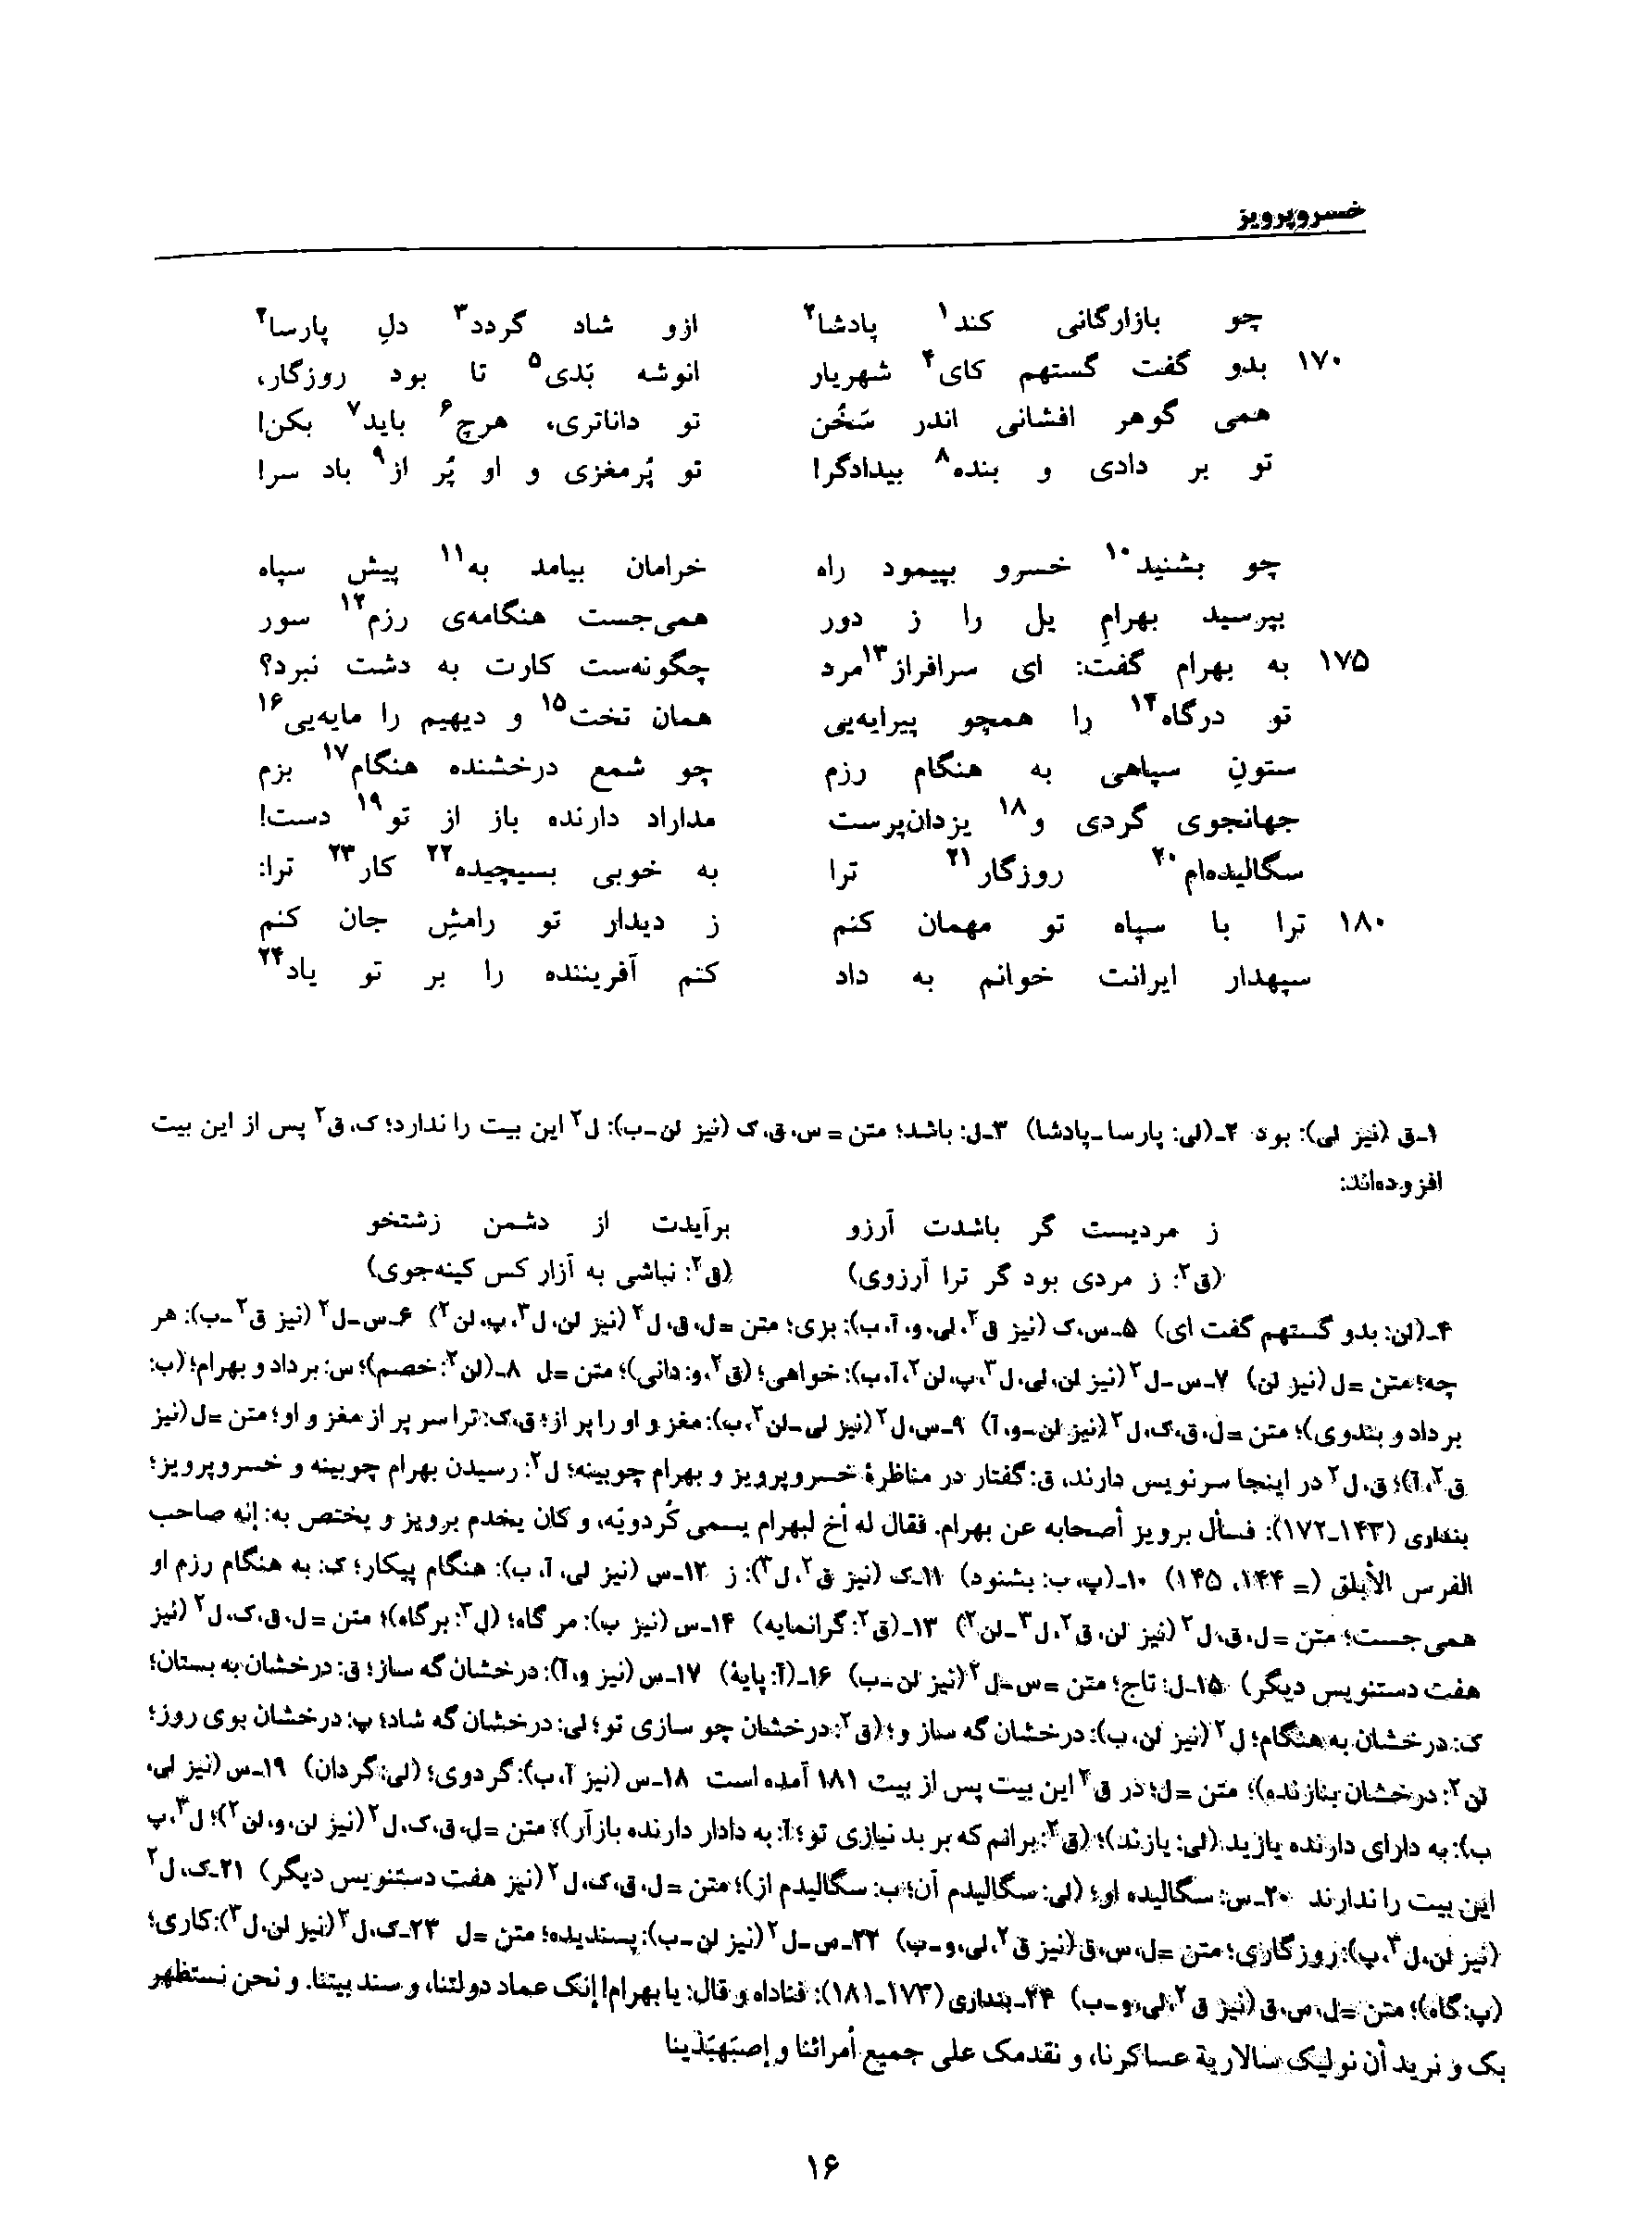 خسروپرویز
چو بازارگانی کند۱ پادشا۲ ازو شاد گردد۳ دلِ پارسا۲
۱۷۰ بدو گفت گستهم کای۴ شهریار انوشه بَدی۵ تا بود روزگار،
همی گوهر افشانی اندر سَخُن تو داناتری، هرچ۶ باید۷ بکن!
تو بر دادی و بنده۸ بیدادگر! تو پُرمغزی و او پُر از۹ باد سر!
چو بشنید۱۰ خسرو بپیمود راه خرامان بیامد به۱۱ پیش سپاه
بپرسید بهرامِ یل را ز دور همی‌جست هنگامه‌ی رزم۱۲ سور
۱۷۵ به بهرام گفت: ای سرافراز۱۳ مرد چگونه‌ست کارت به دشت نبرد؟
تو درگاه۱۴ را همچو پیرایه‌یی همان تخت۱۵ و دیهیم را مایه‌یی۱۶
ستونِ سپاهی به هنگام رزم چو شمع درخشنده هنگام۱۷ بزم
جهانجوی گردی و۱۸ یزدان‌پرست مداراد دارنده باز از تو۱۹ دست!
سگالیده‌ام۲۰ روزگار۲۱ ترا به خوبی بسیچیده۲۲ کار۲۳ ترا:
۱۸۰ ترا با سپاه تو مهمان کنم ز دیدار تو رامشِ جان کنم
سپهدار ایرانت خوانم به داد کنم آفریننده را بر تو یاد۲۴
۱ـ ق (نیز لی): بود ۲ـ (لی: پارسا ـ پادشا) ۳ـ ل: باشد؛ متن = س، ق، ک (نیز لن ـ ب): ل۲ این بیت را ندارد؛ ک، ق۲ پس از این بیت
افزوده‌اند:
ز مردیست گر باشدت آرزو برآیدت از دشمن زشتخو
(ق۲: ز مردی بود گر ترا آرزوی) (ق۲: نباشی به آزار کس کینه‌جوی)
۴ـ (لن: بدو گستهم گفت ای) ۵ـ س، ک (نیز ق۲، لی، و، آ، ب): بزی؛ متن = ل، ق، ل۲ (نیز لن، ل۳، پ، لن۲) ۶ـ س ـ ل۲ (نیز ق۲ ـ ب): هر
چه؛ متن = ل (نیز لن) ۷ـ س ـ ل۲ (نیز لن، لی، ل۳، پ، لن۲، آ، ب): خواهی؛ (ق۲، و: دانی)؛ متن = ل ۸ـ (لن۲: خصم)؛ س: بر داد و بهرام؛ (ب:
بر داد و بندوی)؛ متن = ل، ق، ک، ل۲ (نیز لن ـ و، آ) ۹ـ س، ل۲ (نیز لی ـ لن۲، ب): مغز و او را پر از؛ ق، ک: ترا سر پر از مغز و او؛ متن = ل (نیز
ق۲، آ)؛ ق، ل۲ در اینجا سرنویس دارند، ق: گفتار در مناظرهٔ خسروپرویز و بهرام چوبینه؛ ل۲: رسیدن بهرام چوبینه و خسروپرویز؛
بنداری (۱۴۳ـ۱۷۲): فسأل برویز أصحابه عن بهرام. فقال له أخ لبهرام یسمی کُردویَه، و کان یخدم برویز و یختص به: إنه صاحب
الفرس الأبلق (= ۱۴۴، ۱۴۵) ۱۰ـ (پ، ب: بشنود) ۱۱ـ ک (نیز ق۲، ل۳): ز ۱۲ـ س (نیز لی، آ، ب): هنگام پیکار؛ ک: به هنگام رزم او
همی‌جست؛ متن = ل، ق، ل۲ (نیز لن، ق۲، ل۳ ـ لن۲) ۱۳ـ (ق۲: گرانمایه) ۱۴ـ س (نیز ب): مر گاه؛ (ل۳: برگاه)؛ متن = ل، ق، ک، ل۲ (نیز
هفت دستنویس دیگر) ۱۵ـ ل: تاج؛ متن = س ـ ل۲ (نیز لن ـ ب) ۱۶ـ (آ: پایهٔ) ۱۷ـ س (نیز و، آ): درخشان گه ساز؛ ق: درخشان به بستان؛
ک: درخشان به هنگام؛ ل۲ (نیز لن، ب): درخشان گه ساز و؛ (ق۲: درخشان چو سازی تو؛ لی: درخشان گه شاد؛ پ: درخشان بوی روز؛
لن۲: درخشان بنازنده)؛ متن = ل؛ در ق۲ این بیت پس از بیت ۱۸۱ آمده است ۱۸ـ س (نیز آ، ب): گردوی؛ (لی: گردان) ۱۹ـ س (نیز لی،
ب): به دارای دارنده یازید (لی: یازند)؛ (ق۲: برانم که بر بد نیازی تو؛ آ: به دادار دارنده بازآر)؛ متن = ل، ق، ک، ل۲ (نیز لن، و، لن۲)؛ ل۳، پ
این بیت را ندارند ۲۰ـ س: سگالیده او؛ (لی: سگالیدم آن؛ ب: سگالیدم از)؛ متن = ل، ق، ک، ل۲ (نیز هفت دستنویس دیگر) ۲۱ـ ک، ل۲
(نیز لن، ل۳، پ): روزگاری؛ متن = ل، س، ق (نیز ق۲، لی، و ـ ب) ۲۲ـ س ـ ل۲ (نیز لن ـ ب): پسندیده؛ متن = ل ۲۳ـ ک، ل۲ (نیز لن، ل۳): کاری؛
(پ: گاه)؛ متن = ل، س، ق (نیز ق۲، لی، و ـ ب) ۲۴ـ بنداری (۱۷۳ـ۱۸۱): فناداه و قال: یا بهرام! إنک عماد دولتنا، و سند بیتنا. و نحن نستظهر
بک و نرید أن نولیک سالاریة عساکرنا، و نقدمک علی جمیع أمرائنا و إصبَهبَذینا
۱۶